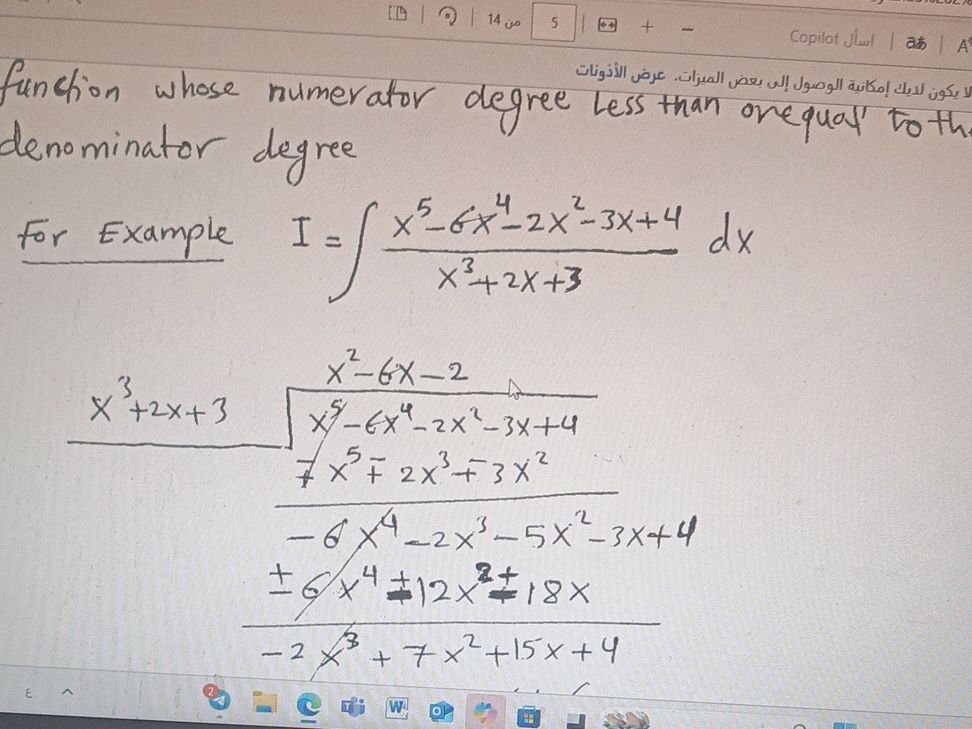 14 من
5
+
−
اسأل Copilot
aあ
A
لا يكون لديك إمكانية الوصول إلى بعض الميزات. عرض الأذونات
function whose numerator degree Less than or equal to the
denominator degree
For Example I = ∫ (x⁵ − 6x⁴ − 2x² − 3x + 4)/(x³ + 2x + 3) dx
x² − 6x − 2
x³ + 2x + 3
x⁵ − 6x⁴ − 2x² − 3x + 4
∓ x⁵ ∓ 2x³ ∓ 3x²
− 6x⁴ − 2x³ − 5x² − 3x + 4
± 6x⁴ ± 12x² ± 18x
− 2x³ + 7x² + 15x + 4
ع
2